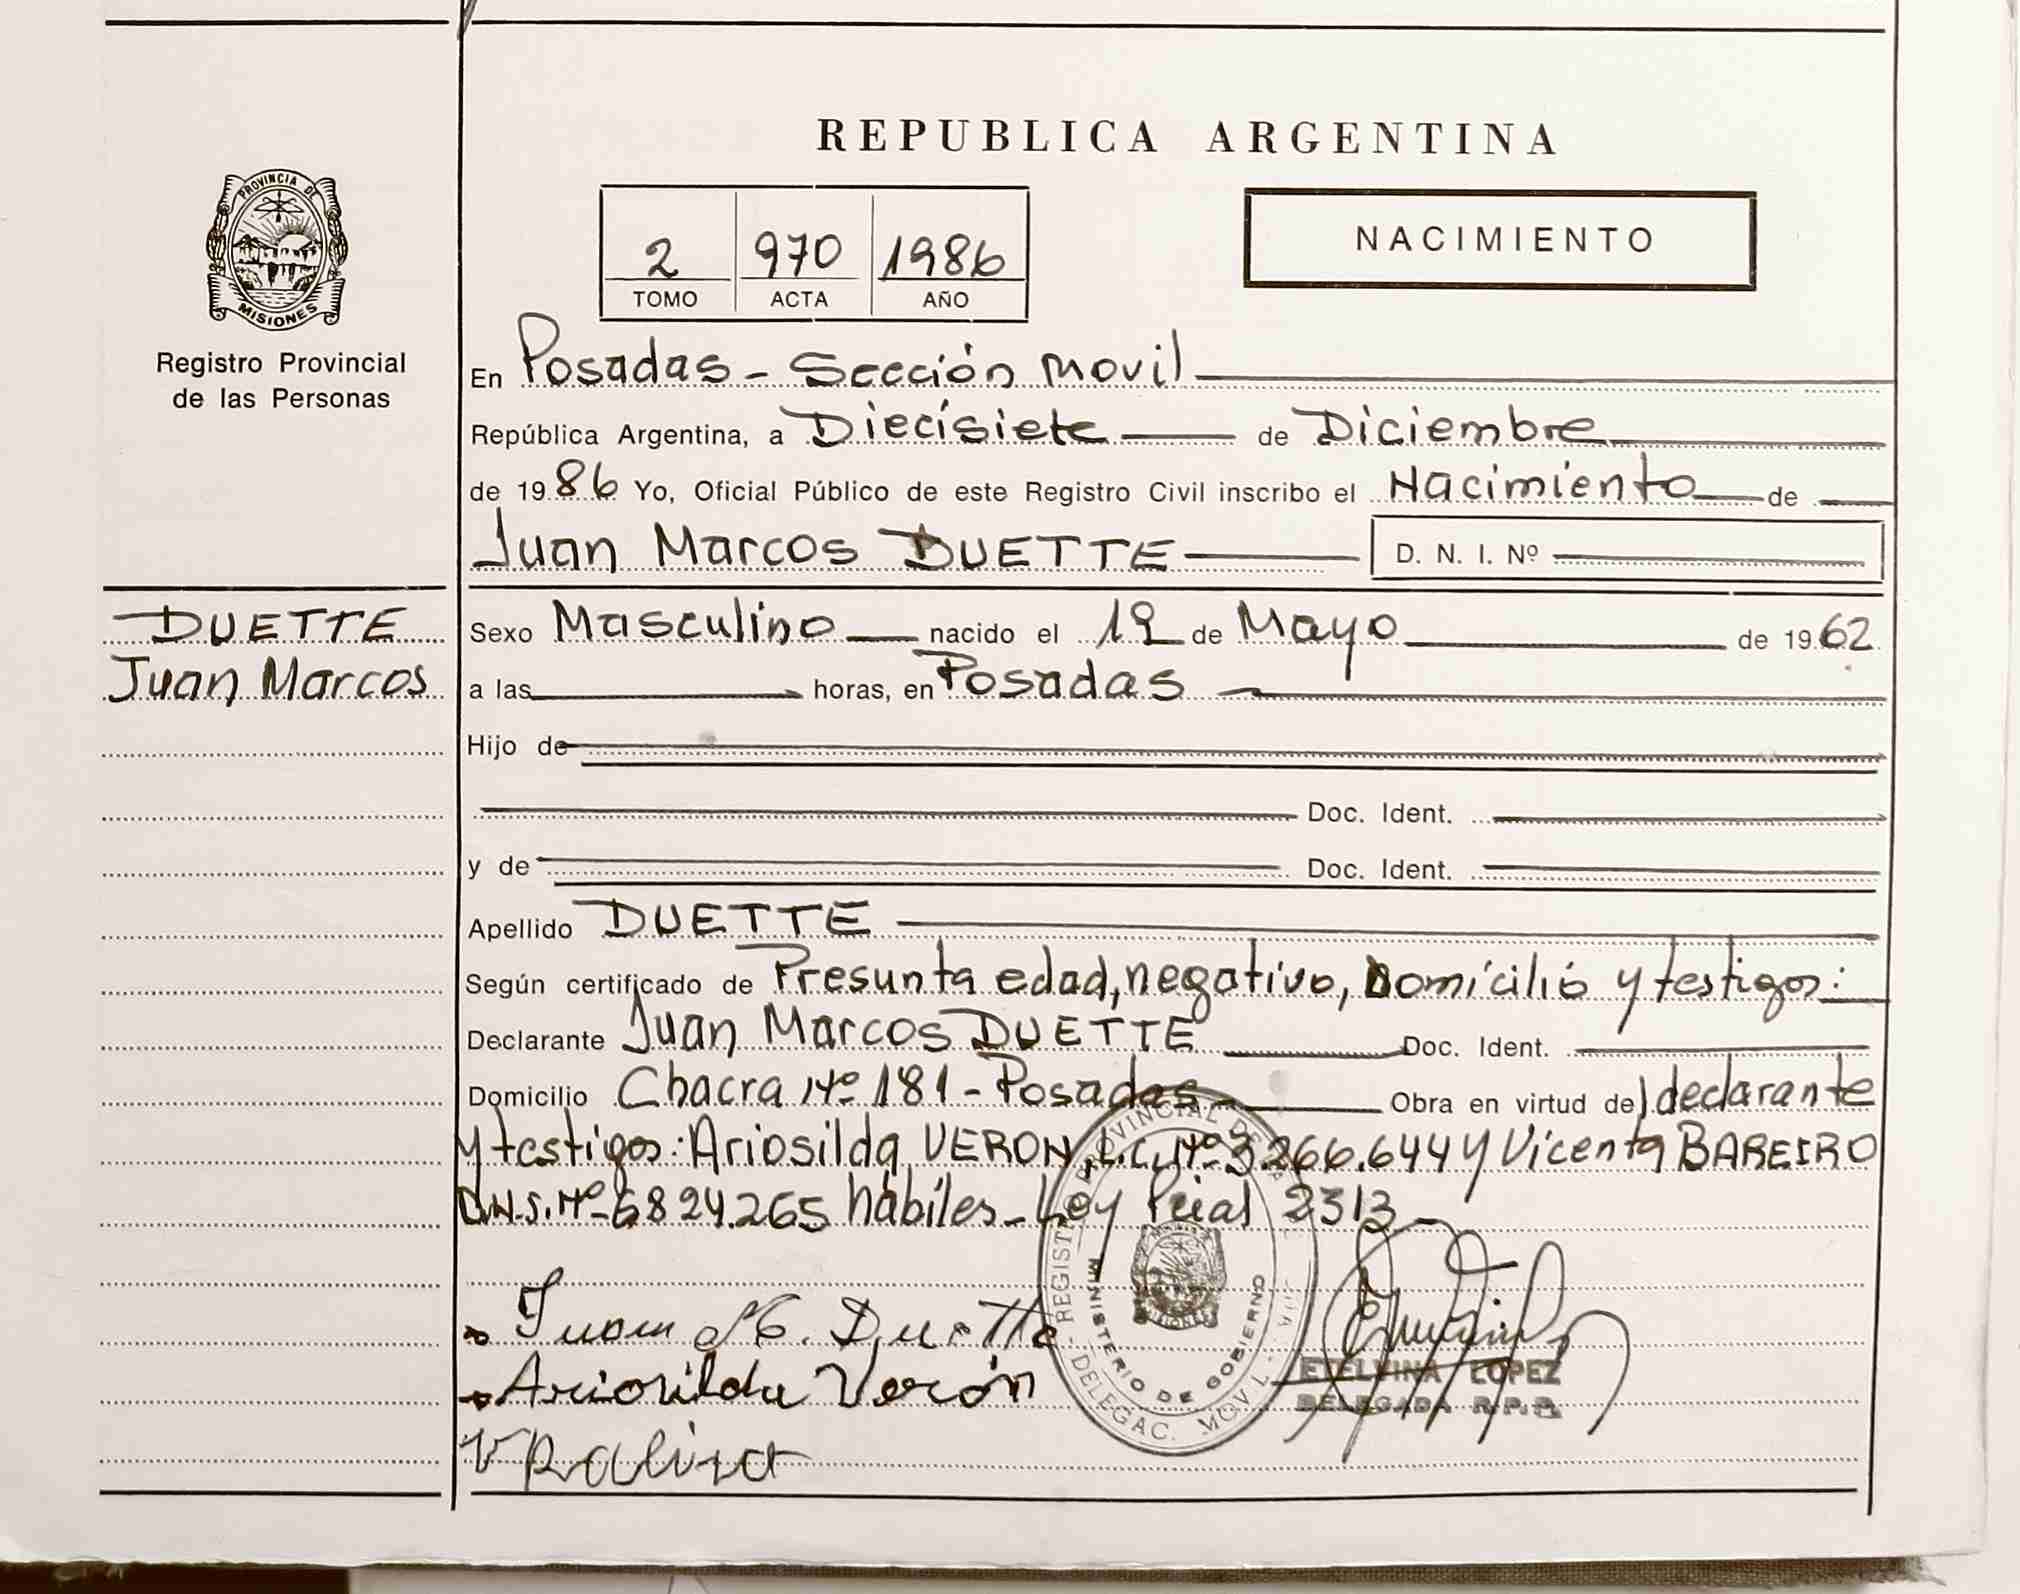 REPUBLICA ARGENTINA
PROVINCIA DE
MISIONES
Registro Provincial
de las Personas
2 970 1986
TOMO ACTA AÑO
NACIMIENTO
En Posadas - Sección Movil
República Argentina, a Diecisiete de Diciembre
de 1986 Yo, Oficial Público de este Registro Civil inscribo el Nacimiento de
Juan Marcos DUETTE D. N. I. Nº
DUETTE
Juan Marcos
Sexo Masculino nacido el 12 de Mayo de 1962
a las horas, en Posadas
Hijo de
Doc. Ident.
y de Doc. Ident.
Apellido DUETTE
Según certificado de Presunta edad, negativo, Domicilio y testigos:
Declarante Juan Marcos DUETTE Doc. Ident.
Domicilio Chacra Nº 181 - Posadas Obra en virtud del declarante
y testigos: Ariosilda VERON, L.C. Nº 3.266.644 y Vicenta BAREIRO
D.N.I. Nº 6824.265 hábiles - Ley Pcial 2313
Juan M. Duette
Ariosilda Verón
REGISTRO PROVINCIAL DE LAS
DELEGAC. MOVIL
MINISTERIO DE GOBIERNO
MISIONES
ETELVINA LOPEZ
DELEGADA R.P.P.